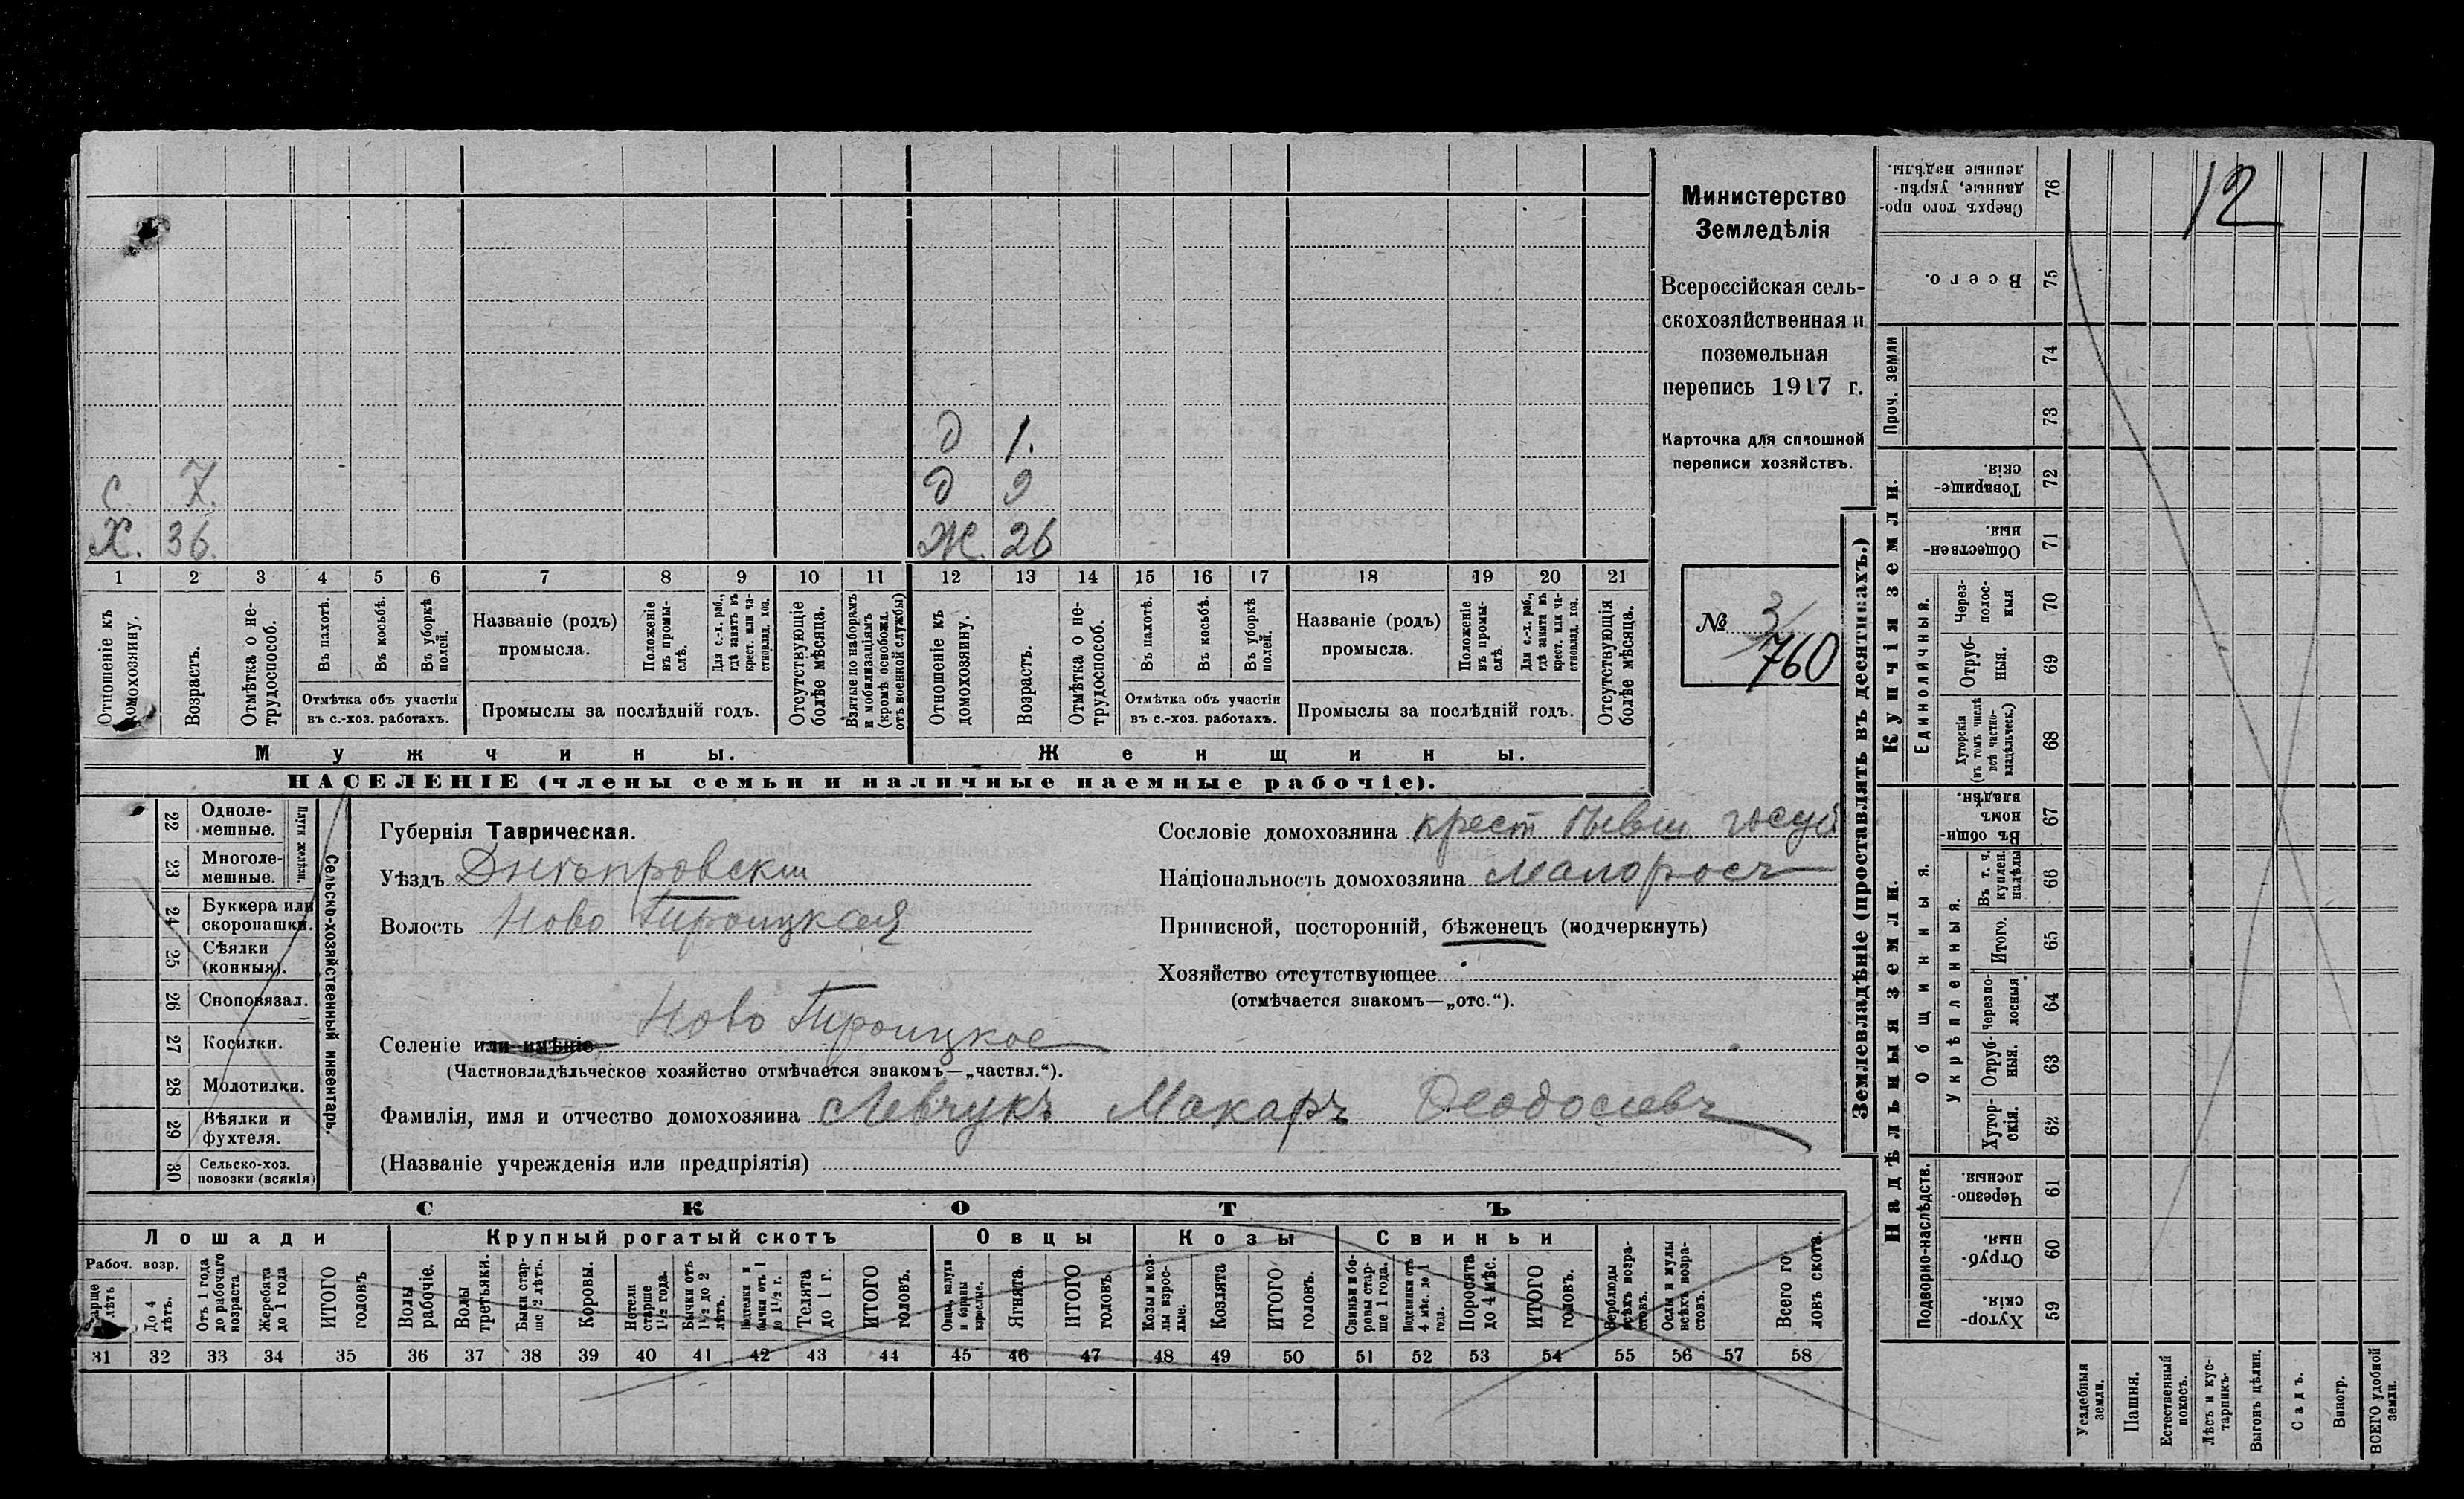 Министерство
Земледѣлія
Всероссійская сель-
скохозяйственная и
поземельная
перепись 1917 г.
Карточка для сплошной
переписи хозяйствъ.
№ 3/
760
12
д 1.
с. 7. д 9
Х. 36. Ж. 26
1 2 3 4 5 6 7 8 9 10 11 12 13 14 15 16 17 18 19 20 21
Отношеніе къ домохозяину.
Возрастъ.
Отмѣтка о не-трудоспособ.
Въ пахотѣ.
Въ косьбѣ.
Въ уборкѣ полей.
Отмѣтка объ участіи
въ с.-хоз. работахъ.
Названіе (родъ)
промысла.
Положеніе въ промы-слѣ.
Для с.-х. раб., гдѣ занятъ въ крест. или ча-стновлад. хоз.
Промыслы за послѣдній годъ.
Отсутствующіе болѣе мѣсяца.
Взятые по наборамъ и мобилизаціямъ (кромѣ освобожд. отъ военной службы)
Отношеніе къ домохозяину.
Возрастъ.
Отмѣтка о не-трудоспособ.
Въ пахотѣ.
Въ косьбѣ.
Въ уборкѣ полей.
Отмѣтка объ участіи
въ с.-хоз. работахъ.
Названіе (родъ)
промысла.
Положеніе въ промы-слѣ.
Для с.-х. раб., гдѣ занята въ крест. или ча-стновлад. хоз.
Промыслы за послѣдній годъ.
Отсутствующія болѣе мѣсяца.
Мужчины. Женщины.
НАСЕЛЕНІЕ (члены семьи и наличные наемные рабочіе).
Сельско-хозяйственный инвентарь.
Плуги желѣзн.
22 Одноле-мешные.
23 Многоле-мешные.
24 Буккера или скоропашки.
25 Сѣялки (конныя).
26 Сноповязал.
27 Косилки.
28 Молотилки.
29 Вѣялки и фухтеля.
30 Сельско-хоз. повозки (всякія)
Губернія Таврическая.
Уѣздъ Днѣпровскій
Волость Ново Троицкая
Селеніе или имѣніе Ново Троицкое
(Частновладѣльческое хозяйство отмѣчается знакомъ—„частвл.“).
Фамилія, имя и отчество домохозяина Левчукъ Макаръ Феодосіевъ
(Названіе учрежденія или предпріятія)
Сословіе домохозяина крест бывш госуд
Національность домохозяина малороссъ
Приписной, посторонній, бѣженецъ (подчеркнуть)
Хозяйство отсутствующее
(отмѣчается знакомъ—„отс.“).
СКОТЪ
Лошади Крупный рогатый скотъ Овцы Козы Свиньи
Рабоч. возр.
До 4 лѣтъ.
Отъ 1 года до рабочаго возраста
Жеребята до 1 года
ИТОГО головъ
Волы рабочіе.
Волы третьяки.
Быки стар-ше 2 лѣтъ.
Коровы.
Нетели старше 1½ года.
Бычки отъ 1½ до 2 лѣтъ.
Телята до 1 г.
ИТОГО головъ.
Овцы, валухи и бараны взрослые.
Ягнята.
ИТОГО головъ.
Козы и коз-лы взрос-лые.
Козлята
ИТОГО головъ.
Свиньи и бо-ровы стар-ше 1 года.
Подсвинки отъ 4 мѣс. до 1 года.
Поросята до 4 мѣс.
ИТОГО головъ.
Верблюды всѣхъ возра-стовъ.
Ослы и мулы всѣхъ возра-стовъ.
Всего го-ловъ скота.
31 32 33 34 35 36 37 38 39 40 41 42 43 44 45 46 47 48 49 50 51 52 53 54 55 56 57 58
Землевладѣніе (проставлять въ десятинахъ.)
Купчія земли.
Надѣльныя земли.
Сверхъ того про-данные, укрѣп-ленные надѣлы. 76
Всего. 75
Проч. земли
74
73
Товарище-скія. 72
Обществен-ныя. 71
Единоличныя.
Через-полос-ныя 70
Отруб-ныя. 69
Хуторскія (въ томъ числѣ всѣ частно-владѣльческ.) 68
Общинныя.
Въ общин-номъ владѣн. 67
Укрѣпленныя.
Въ т. ч. куплен. надѣлы 66
Итого. 65
Черезпо-лосныя 64
Отруб-ныя. 63
Хутор-скія. 62
Подворно-наслѣдств.
Черезпо-лосныя. 61
Отруб-ныя. 60
Хутор-скія. 59
Усадебныя земли.
Пашня.
Естественный покосъ.
Лѣсъ и кус-тарникъ.
Выгонъ цѣлин.
Садъ.
Виногр.
ВСЕГО удобной земли.